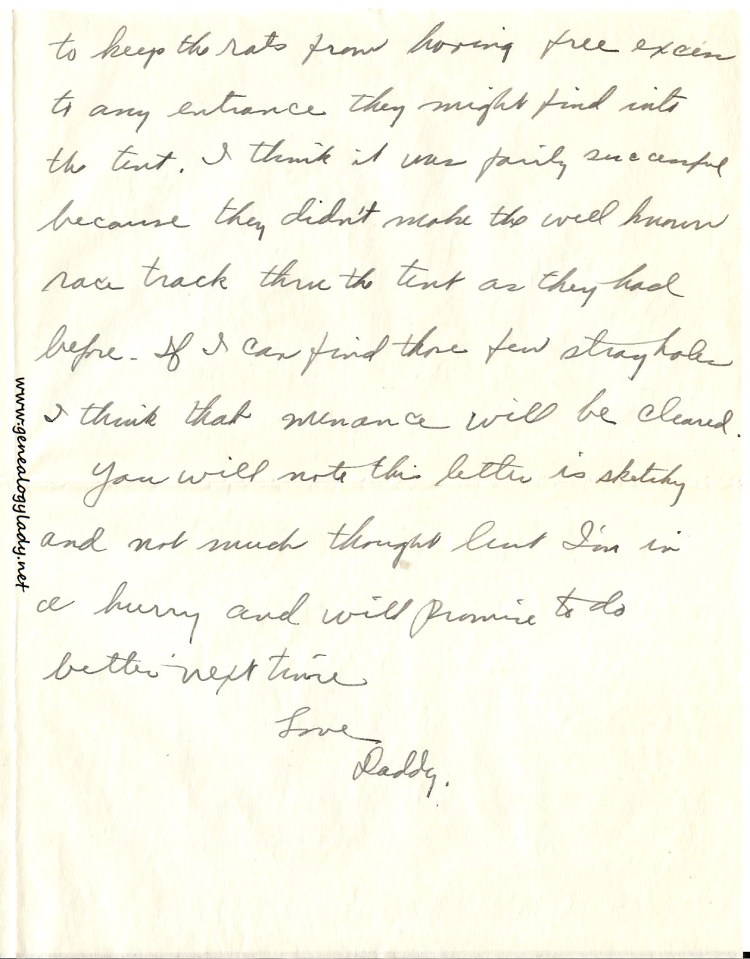 to keep the rats from having free excess
to any entrance they might find into
the tent. I think it was fairly successful
because they didn't make the well known
race track thru the tent as they had
before. If I can find those few stray holes
I think that menance will be cleared.
You will note this letter is sketchy
and not much thought but I'm in
a hurry and will promise to do
better next time
Love
Daddy.
www.genealogylady.net